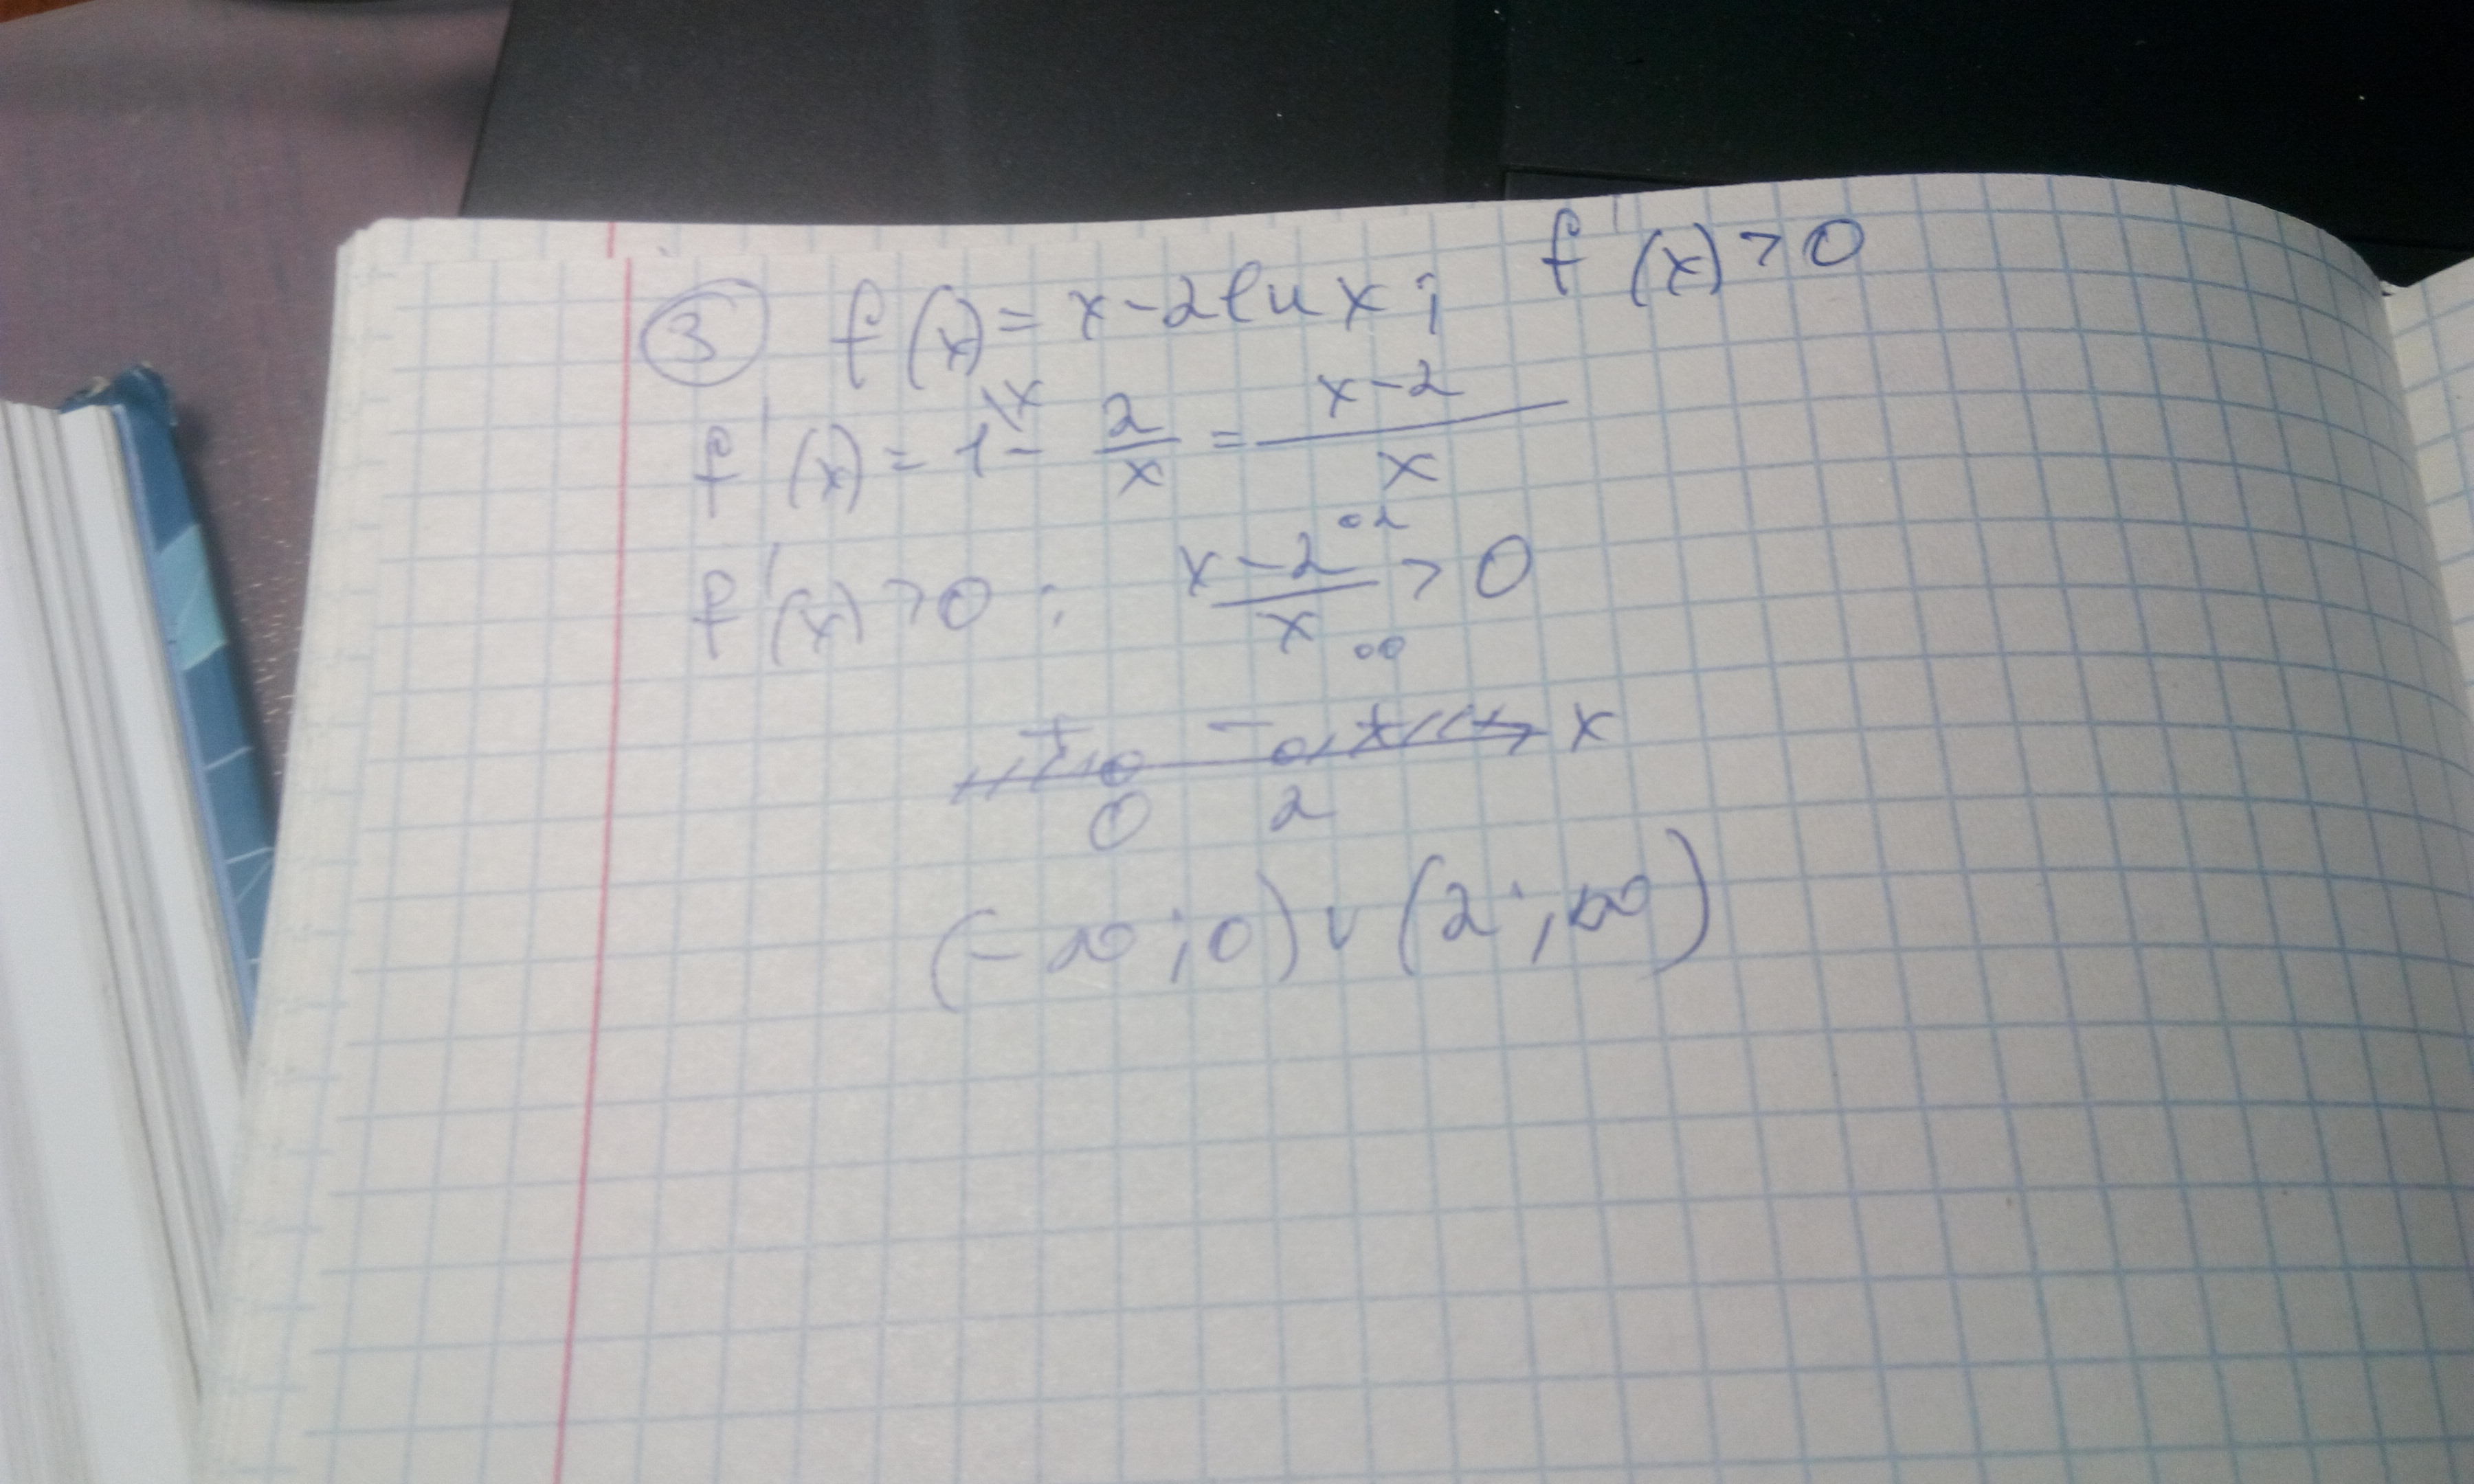 ③ f(x) = x - 2 ln x; f'(x) > 0
f'(x) = 1\x - 2/x = (x-2)/x
f'(x) > 0 : (x-2)/x > 0 ∘2 ∘0
+ - + x
0 2
(-∞; 0) ∪ (2; ∞)